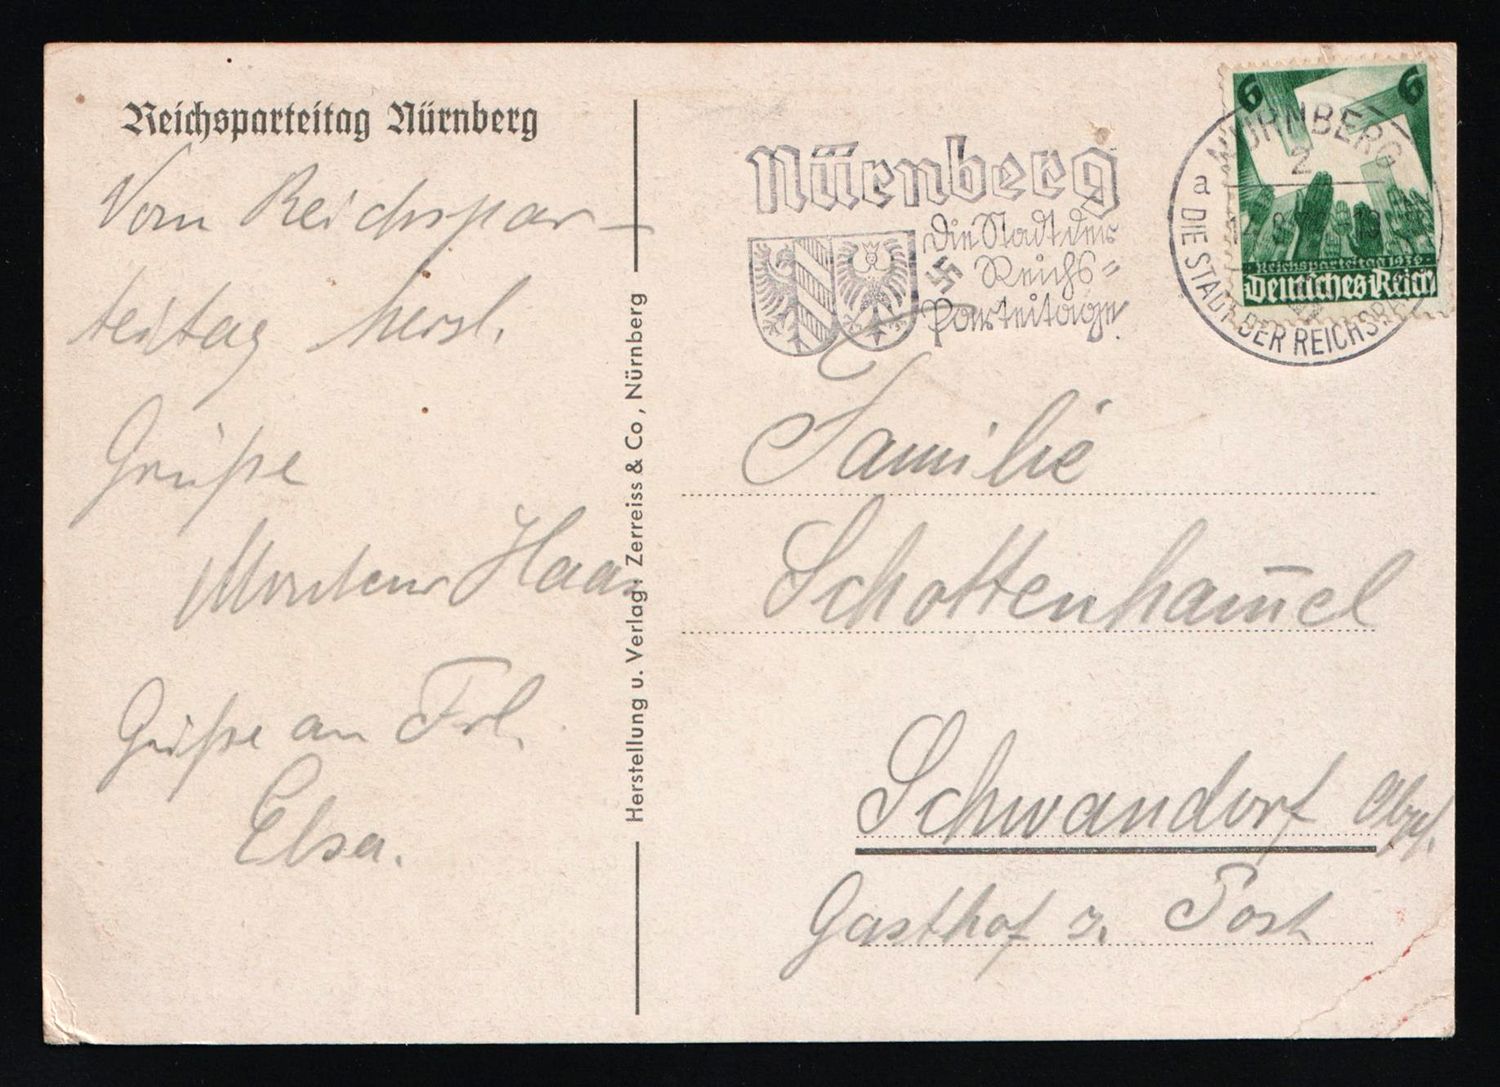 Reichsparteitag Nürnberg
Vom Reichspar-
teitag herzl.
Grüße
Monteur Haas
Grüße an Frl.
Elsa.
Herstellung u. Verlag: Zerreiss & Co, Nürnberg
Nürnberg
Die Stadt der
Reichs=
parteitage
NÜRNBERG
2
a
DIE STADT DER REICHSPA
6 6
Reichsparteitag 1936
Deutsches Reich
Familie
Schottenham̅el
Schwandorf Obpf.
Gasthof z. Post